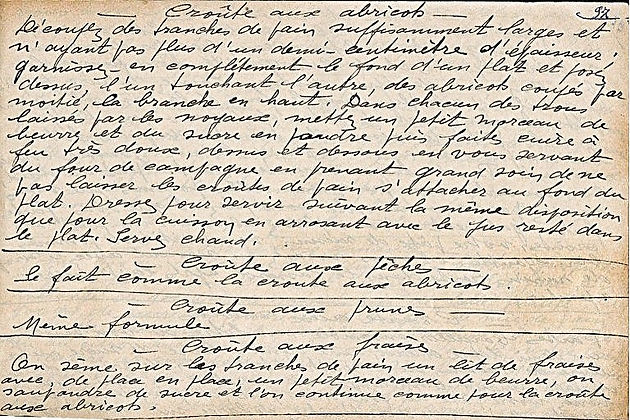 Croûte aux abricots 97
Découpez des tranches de pain suffisamment larges et
n'ayant pas plus d'un demi-centimètre d'épaisseur.
garnissez en complètement le fond d'un plat et posez
dessus, l'un touchant l'autre, des abricots coupés par
moitié, la branche en haut. Dans chacun des trous
laissés par les noyaux, mettez un petit morceau de
beurre et du sucre en poudre puis faites cuire à
feu très doux, dessus et dessous en vous servant
du four de campagne en prenant grand soin de ne
pas laisser les croûtes de pain s'attacher au fond du
plat. Dressez pour servir suivant la même disposition
que pour la cuisson en arrosant avec le jus resté dans
le plat. Servez chaud.
Croûte aux pêches
Se fait comme la croute aux abricots.
Croûte aux prunes
Même formule
Croûte aux fraises
On sème sur les tranches de pain un lit de fraises
avec, de place en place, un petit morceau de beurre, on
saupoudre de sucre et l'on continue comme pour la croûte
aux abricots.